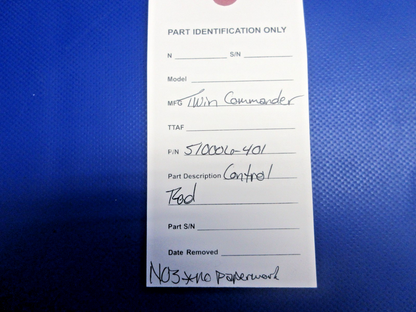 PART IDENTIFICATION ONLY
N S/N
Model
MFG Twin Commander
TTAF
P/N 510006-401
Part Description Control
Rod
Part S/N
Date Removed
NO3 *no paperwork